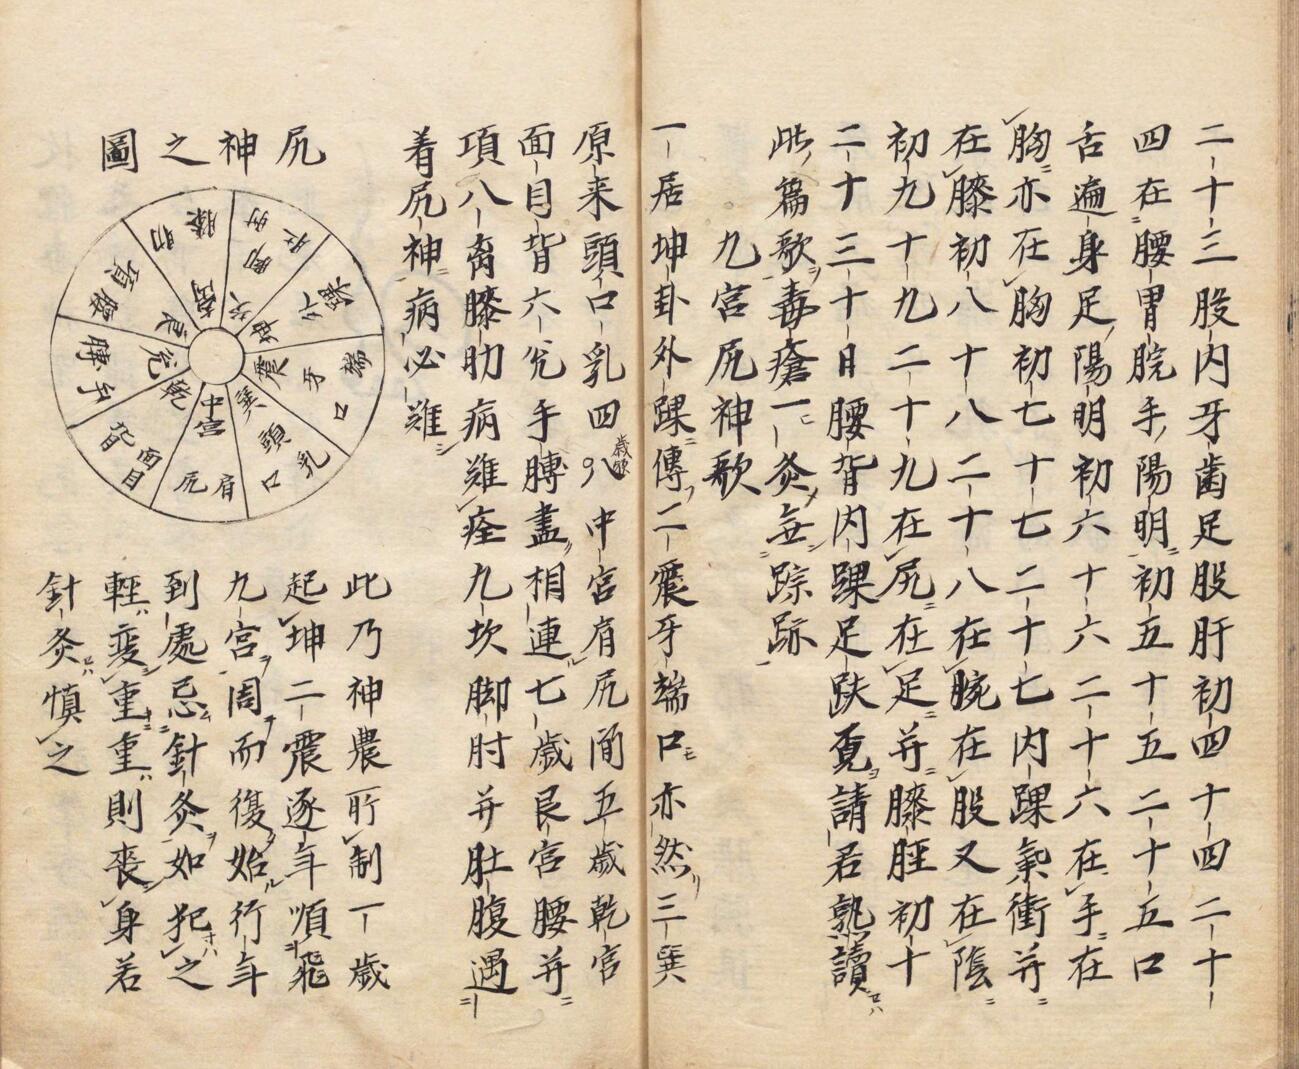 二十三股内牙歯足股肝初四十四二十
四在腰胃脘手陽明初五十五二十五口
舌遍身足陽明初六十六二十六在手在
胸亦在胸初七十七二十七内踝氣衝并
在膝初八十八二十八在腕在股又在陰
初九十九二十九在尻在足并膝脛初十
二十三十日腰背内踝足趺覓請君熟讀
此篇歌毒瘡一灸無踪跡
九宮尻神歌
一居坤卦外踝傳二震牙端口亦然三巽
原来頭口乳四中宮肩尻間五歳乾宮
面目背六兌手膊盡相連七歳艮宮腰并
項八离膝肋病難痊九坎脚肘并肚腹遇
着尻神病必難
尻神之圖
南 膝 肋
坎 脚 肘 肚
坤 踝 外
震 牙 端 口
巽 頭 口 乳
中宮 肩 尻
乾 面目 背
兌 膊 手
艮 腰 項
此乃神農所制一歳
起坤二震逐年順飛
九宮周而復始行年
到處忌針灸如犯之
輕変重重則喪身若
針灸慎之